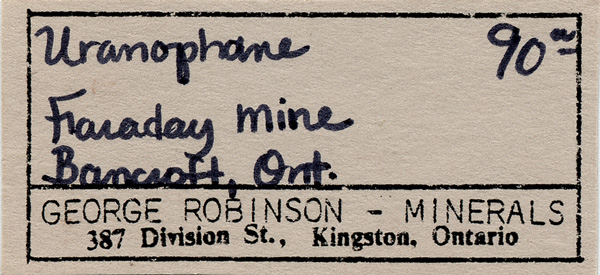 Uranophane 90⁰⁰
Faraday mine
Bancroft, Ont.
GEORGE ROBINSON - MINERALS
387 Division St., Kingston, Ontario